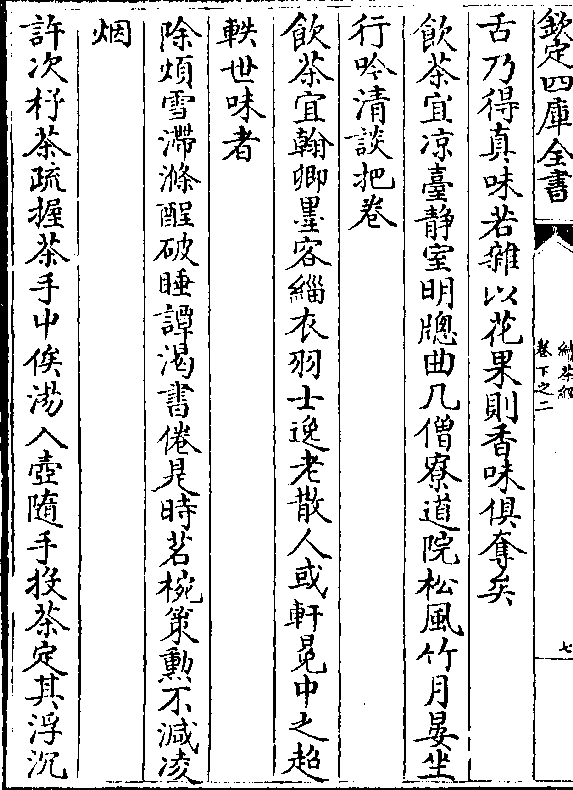 欽定四庫全書
續茶經
卷下之二
七
舌乃得真味若雜以花果則香味俱奪矣
飲茶宜凉臺静室明牕曲几僧寮道院松風竹月晏坐
行吟清談把卷
飲茶宜翰卿墨客緇衣羽士逸老散人或軒冕中之超
軼世味者
除煩雪滯滌酲破睡譚渴書倦是時茗椀策勲不减凌
烟
許次杼茶疏握茶手中俟湯入壺隨手投茶定其浮沉